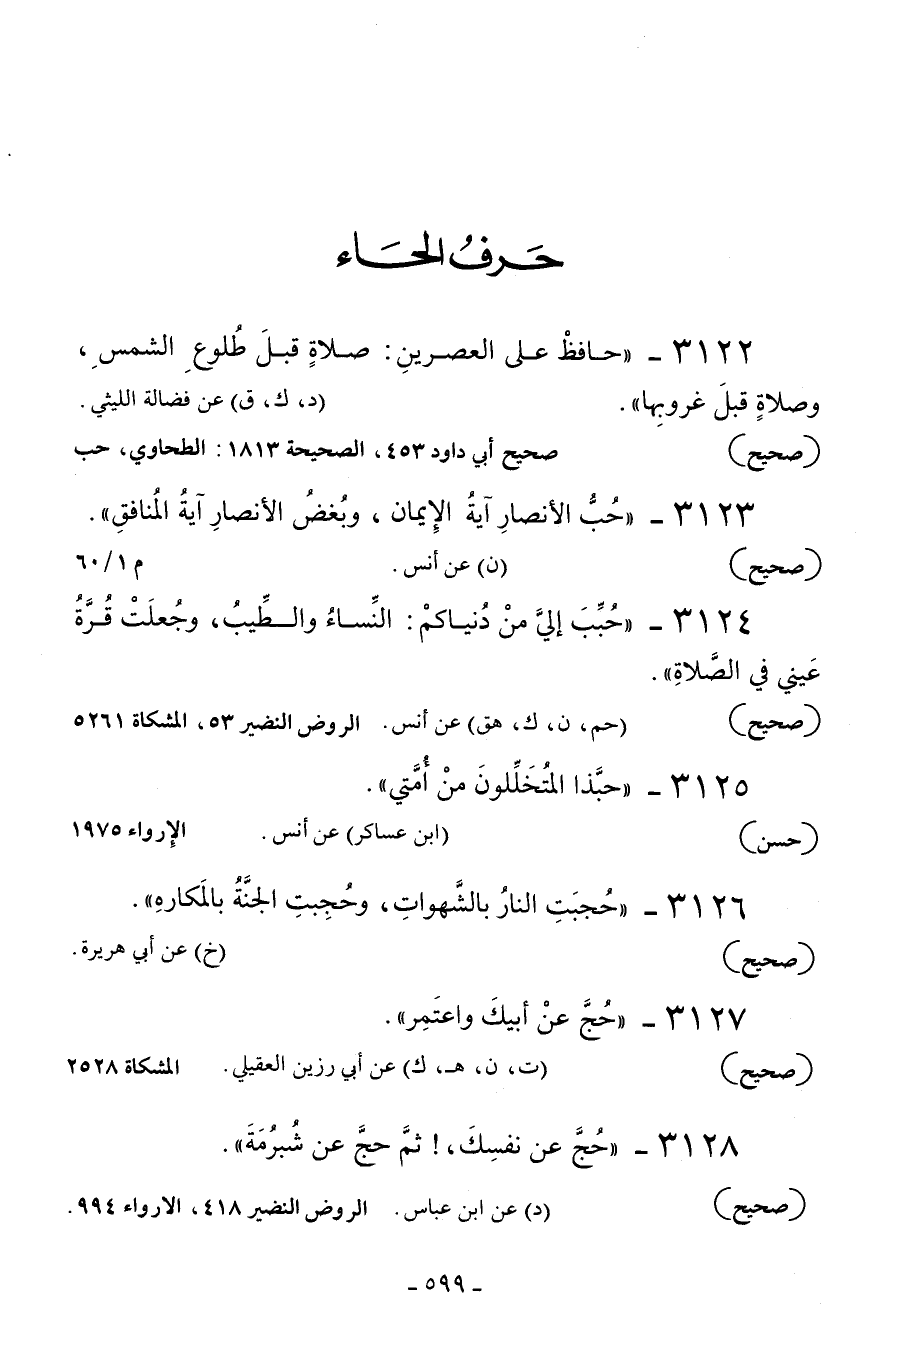 حَرفُ الحَاء
٣١٢٢ - «حافظْ على العصرينِ: صلاةٍ قبلَ طُلوعِ الشمسِ،
وصلاةٍ قبلَ غروبِها». (د، ك، ق) عن فضالة الليثي.
(صحيح) صحيح أبي داود ٤٥٣، الصحيحة ١٨١٣: الطحاوي، حب
٣١٢٣ - «حُبُّ الأنصارِ آيةُ الإِيمان، وبُغضُ الأنصارِ آيةُ المُنافقِ».
(صحيح) (ن) عن أنس. م ٦٠/١
٣١٢٤ - «حُبِّبَ إليَّ منْ دُنياكمْ: النِّساءُ والطِّيبُ، وجُعلَتْ قُرَّةُ
عَيني في الصَّلاةِ».
(صحيح) (حم، ن، ك، هق) عن أنس. الروض النضير ٥٣، المشكاة ٥٢٦١
٣١٢٥ - «حبَّذا المُتخَلِّلونَ منْ أُمَّتي».
(حسن) (ابن عساكر) عن أنس. الإرواء ١٩٧٥
٣١٢٦ - «حُجبَتِ النارُ بالشَّهواتِ، وحُجِبتِ الجنَّةُ بالمَكارهِ».
(صحيح) (خ) عن أبي هريرة.
٣١٢٧ - «حُجَّ عنْ أبيكَ واعتَمِر».
(صحيح) (ت، ن، هـ، ك) عن أبي رزين العقيلي. المشكاة ٢٥٢٨
٣١٢٨ - «حُجَّ عن نفسِكَ،! ثمَّ حجَّ عن شُبرُمَةَ».
(صحيح) (د) عن ابن عباس. الروض النضير ٤١٨، الارواء ٩٩٤.
- ٥٩٩ -